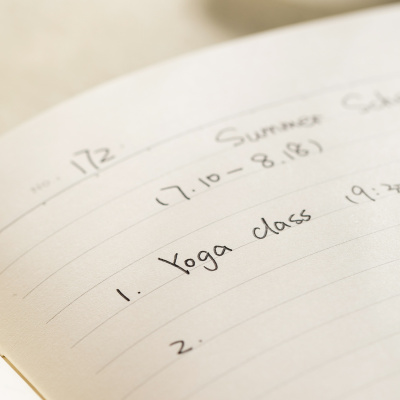 No. 172.
Summer
(7.10 - 8.18)
1. Yoga class
2.